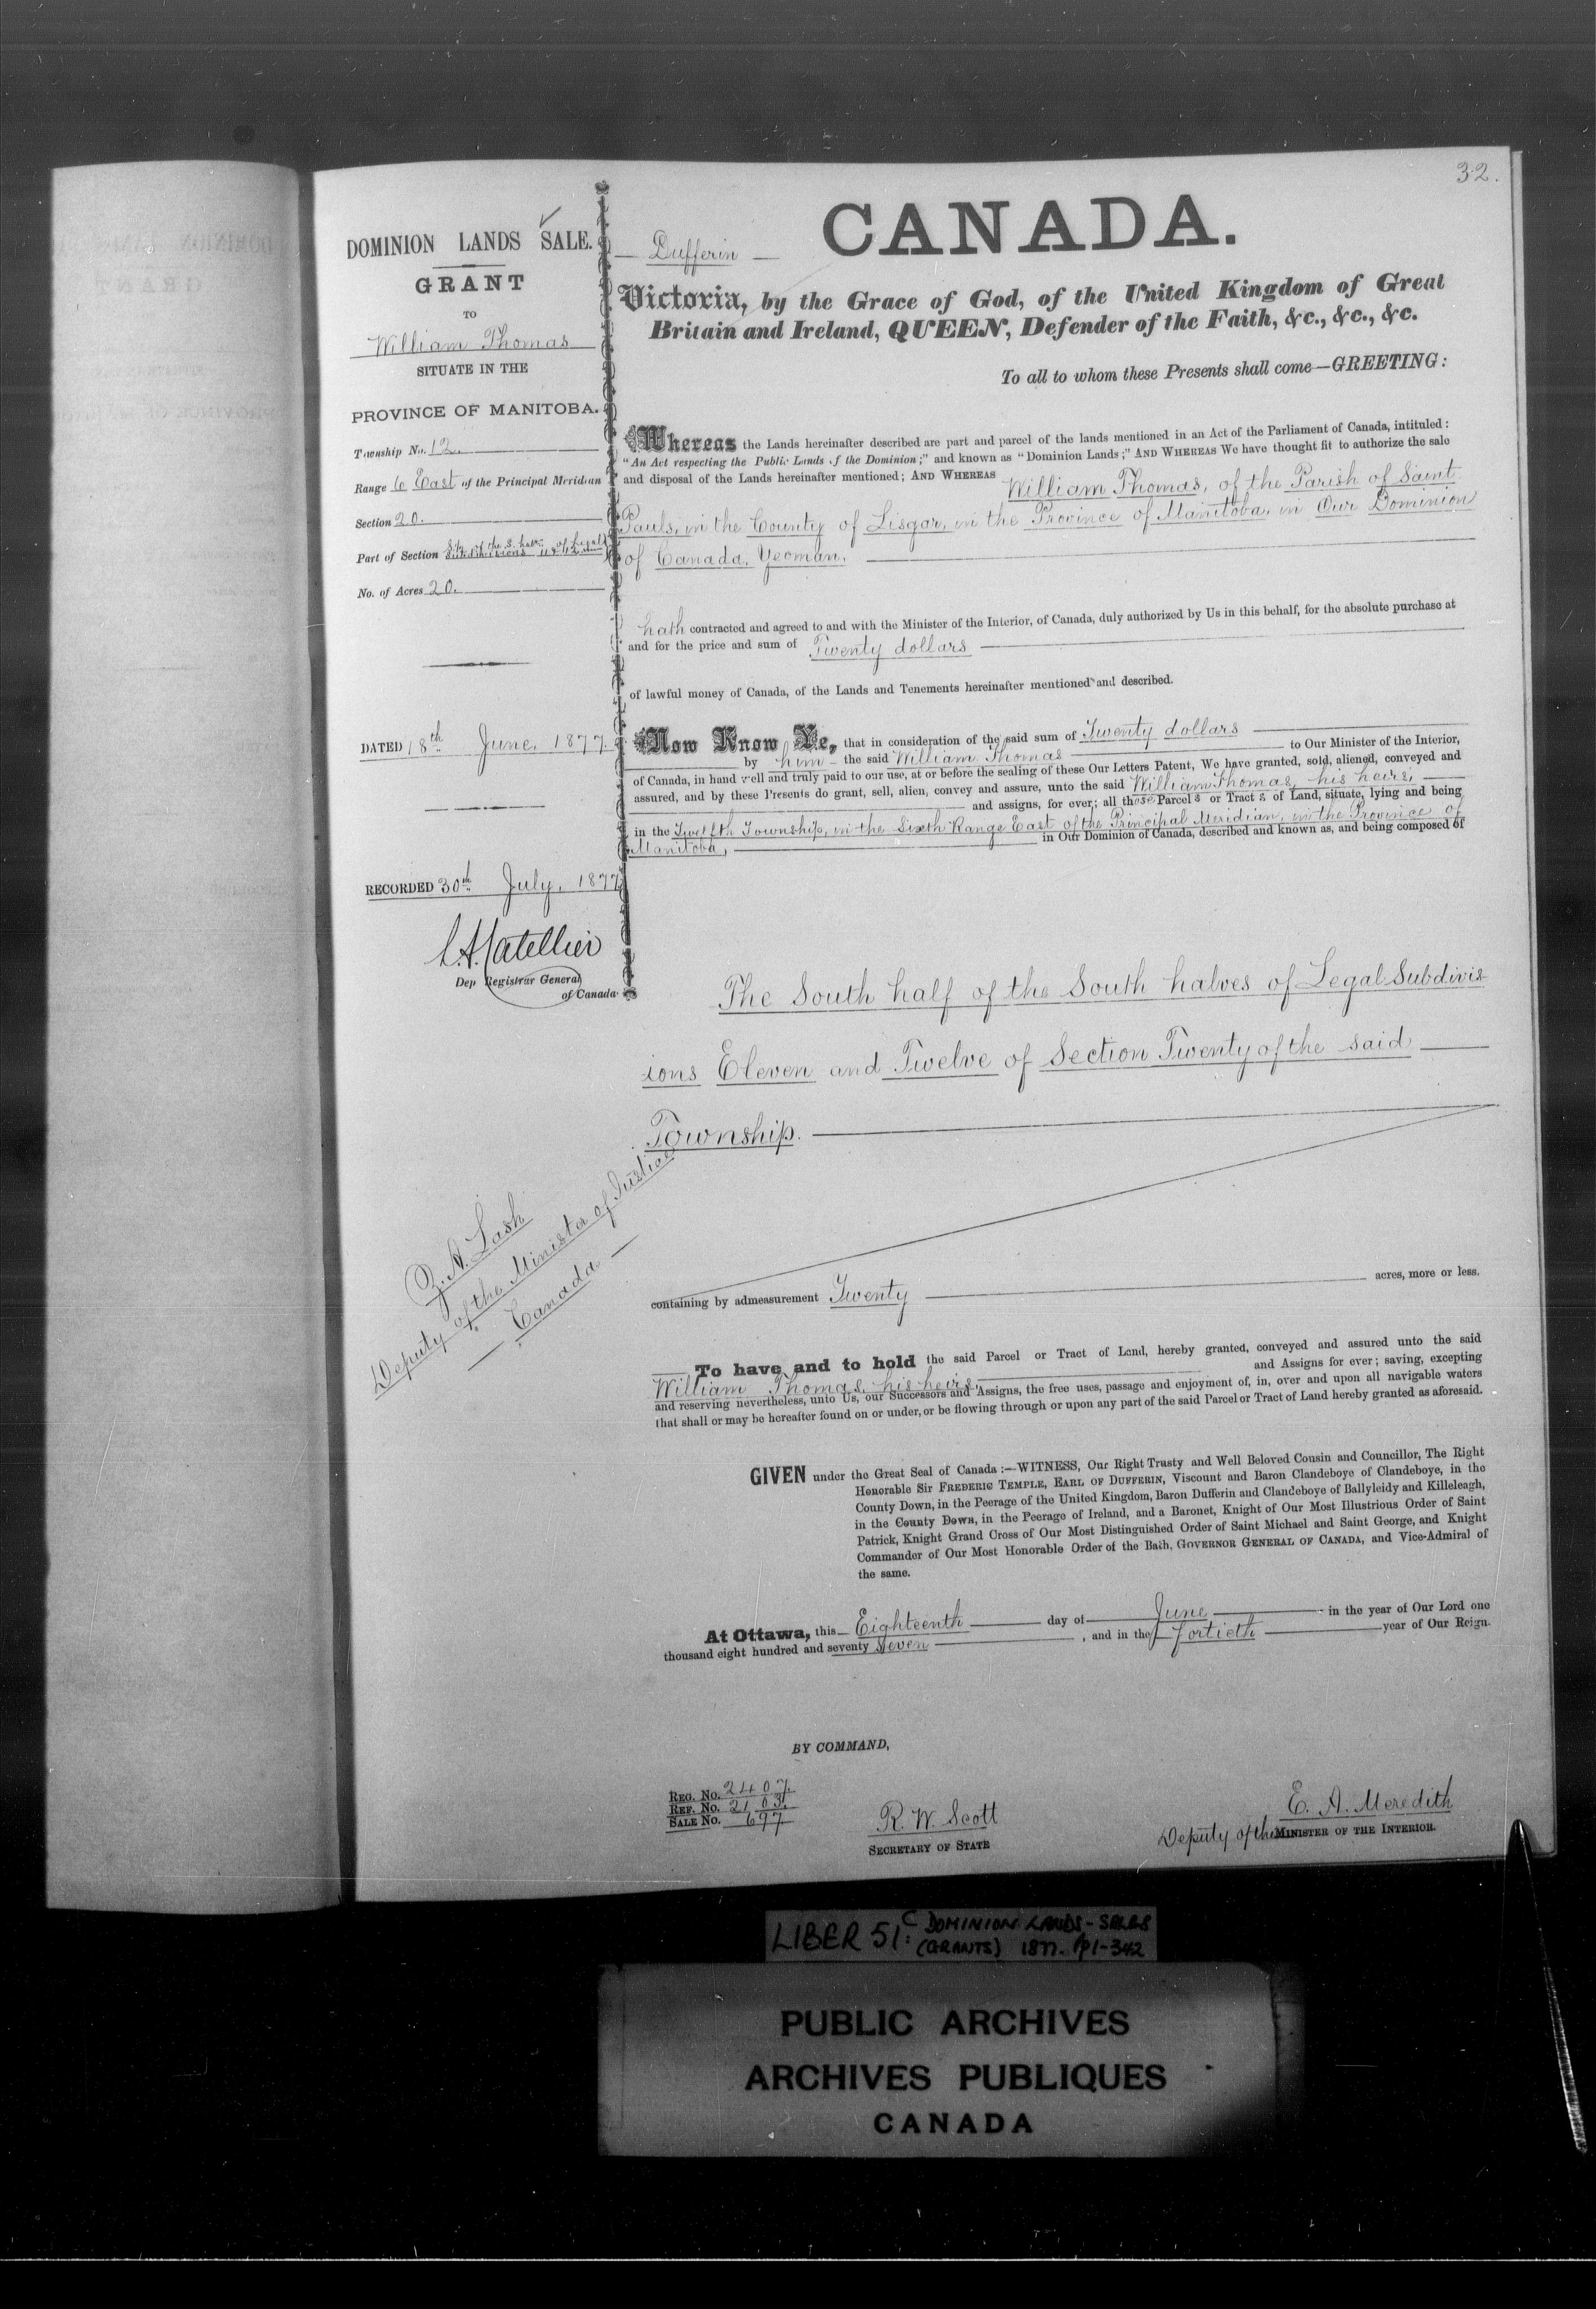 32.
DOMINION LANDS SALE.
GRANT
TO
William Thomas
SITUATE IN THE
PROVINCE OF MANITOBA.
Township No. 12.
Range 6 East of the Principal Meridian
Section 20.
Part of Section S½ of the S. halves of Legal
Subdivisions 11 & 12
No. of Acres 20.
DATED 18th June, 1877.
RECORDED 30th July, 1877
Dep Registrar General
of Canada
Z. A. Lash
Deputy of the Minister of Justice
Canada
Dufferin
CANADA.
Victoria, by the Grace of God, of the United Kingdom of Great
Britain and Ireland, QUEEN, Defender of the Faith, &c., &c., &c.
To all to whom these Presents shall come—GREETING:
Whereas the Lands hereinafter described are part and parcel of the lands mentioned in an Act of the Parliament of Canada, intituled:
"An Act respecting the Public Lands of the Dominion;" and known as "Dominion Lands;" AND WHEREAS We have thought fit to authorize the sale
and disposal of the Lands hereinafter mentioned; AND WHEREAS William Thomas, of the Parish of Saint
Pauls, in the County of Lisgar, in the Province of Manitoba, in Our Dominion
of Canada, Yeoman,
hath contracted and agreed to and with the Minister of the Interior, of Canada, duly authorized by Us in this behalf, for the absolute purchase at
and for the price and sum of Twenty dollars
of lawful money of Canada, of the Lands and Tenements hereinafter mentioned and described.
Now Know Ye, that in consideration of the said sum of Twenty dollars
by him the said William Thomas to Our Minister of the Interior,
of Canada, in hand well and truly paid to our use, at or before the sealing of these Our Letters Patent, We have granted, sold, aliened, conveyed and
assured, and by these Presents do grant, sell, alien, convey and assure, unto the said William Thomas, his heirs,
and assigns, for ever; all those Parcels or Tracts of Land, situate, lying and being
in the Twelfth Township, in the Sixth Range East of the Principal Meridian, in the Province of
Manitoba, in Our Dominion of Canada, described and known as, and being composed of
The South half of the South halves of Legal Subdivis
ions Eleven and Twelve of Section Twenty of the said
Township.
containing by admeasurement Twenty acres, more or less.
To have and to hold the said Parcel or Tract of Land, hereby granted, conveyed and assured unto the said
William Thomas, his heirs and Assigns for ever; saving, excepting
and reserving nevertheless, unto Us, our Successors and Assigns, the free uses, passage and enjoyment of, in, over and upon all navigable waters
that shall or may be hereafter found on or under, or be flowing through or upon any part of the said Parcel or Tract of Land hereby granted as aforesaid.
GIVEN under the Great Seal of Canada:—WITNESS, Our Right Trusty and Well Beloved Cousin and Councillor, The Right
Honorable Sir FREDERIC TEMPLE, EARL OF DUFFERIN, Viscount and Baron Clandeboye of Clandeboye, in the
County Down, in the Peerage of the United Kingdom, Baron Dufferin and Clandeboye of Ballyleidy and Killeleagh,
in the County Down, in the Peerage of Ireland, and a Baronet, Knight of Our Most Illustrious Order of Saint
Patrick, Knight Grand Cross of Our Most Distinguished Order of Saint Michael and Saint George, and Knight
Commander of Our Most Honorable Order of the Bath, GOVERNOR GENERAL OF CANADA, and Vice-Admiral of
the same.
At Ottawa, this Eighteenth day of June in the year of Our Lord one
thousand eight hundred and seventy seven, and in the fortieth year of Our Reign.
BY COMMAND,
REG. No. 2407.
REF. No. 2103.
SALE No. 697
R. W. Scott
SECRETARY OF STATE
E. A. Meredith
Deputy of the MINISTER OF THE INTERIOR.
LIBER 51C: DOMINION LANDS - SALES
(GRANTS) 1877. pp1-342
PUBLIC ARCHIVES
ARCHIVES PUBLIQUES
CANADA